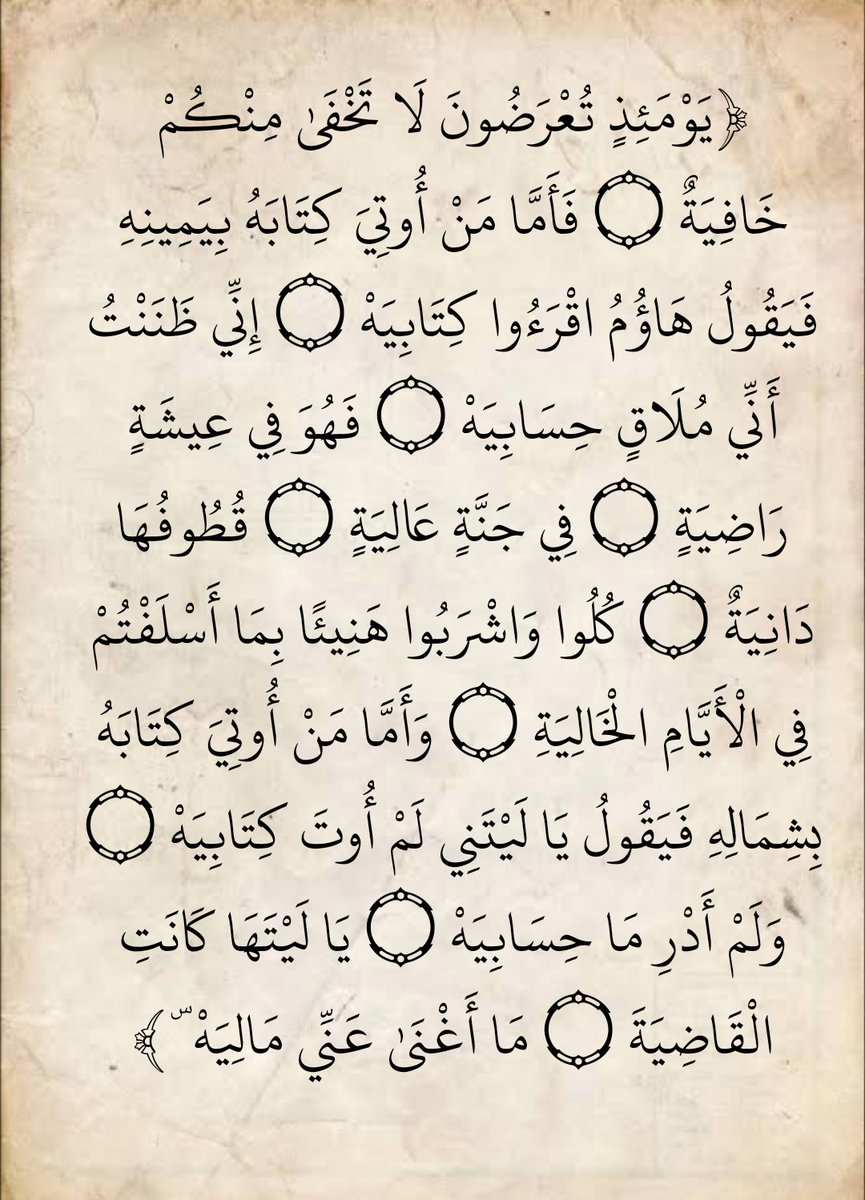 ﴿يَوْمَئِذٍ تُعْرَضُونَ لَا تَخْفَىٰ مِنْكُمْ
خَافِيَةٌ ۝ فَأَمَّا مَنْ أُوتِيَ كِتَابَهُ بِيَمِينِهِ
فَيَقُولُ هَاؤُمُ اقْرَءُوا كِتَابِيَهْ ۝ إِنِّي ظَنَنْتُ
أَنِّي مُلَاقٍ حِسَابِيَهْ ۝ فَهُوَ فِي عِيشَةٍ
رَاضِيَةٍ ۝ فِي جَنَّةٍ عَالِيَةٍ ۝ قُطُوفُهَا
دَانِيَةٌ ۝ كُلُوا وَاشْرَبُوا هَنِيئًا بِمَا أَسْلَفْتُمْ
فِي الْأَيَّامِ الْخَالِيَةِ ۝ وَأَمَّا مَنْ أُوتِيَ كِتَابَهُ
بِشِمَالِهِ فَيَقُولُ يَا لَيْتَنِي لَمْ أُوتَ كِتَابِيَهْ ۝
وَلَمْ أَدْرِ مَا حِسَابِيَهْ ۝ يَا لَيْتَهَا كَانَتِ
الْقَاضِيَةَ ۝ مَا أَغْنَىٰ عَنِّي مَالِيَهْ ۜ﴾